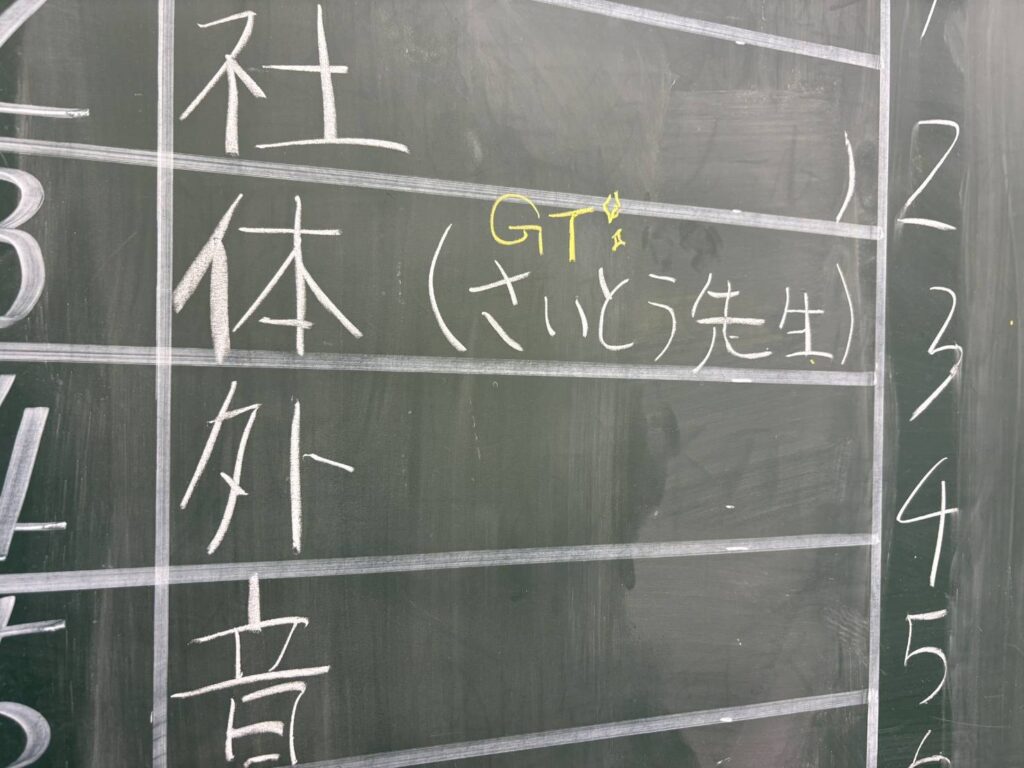 社 2
GT
3 体 (さいとう先生) 3
4 外 4
音 5